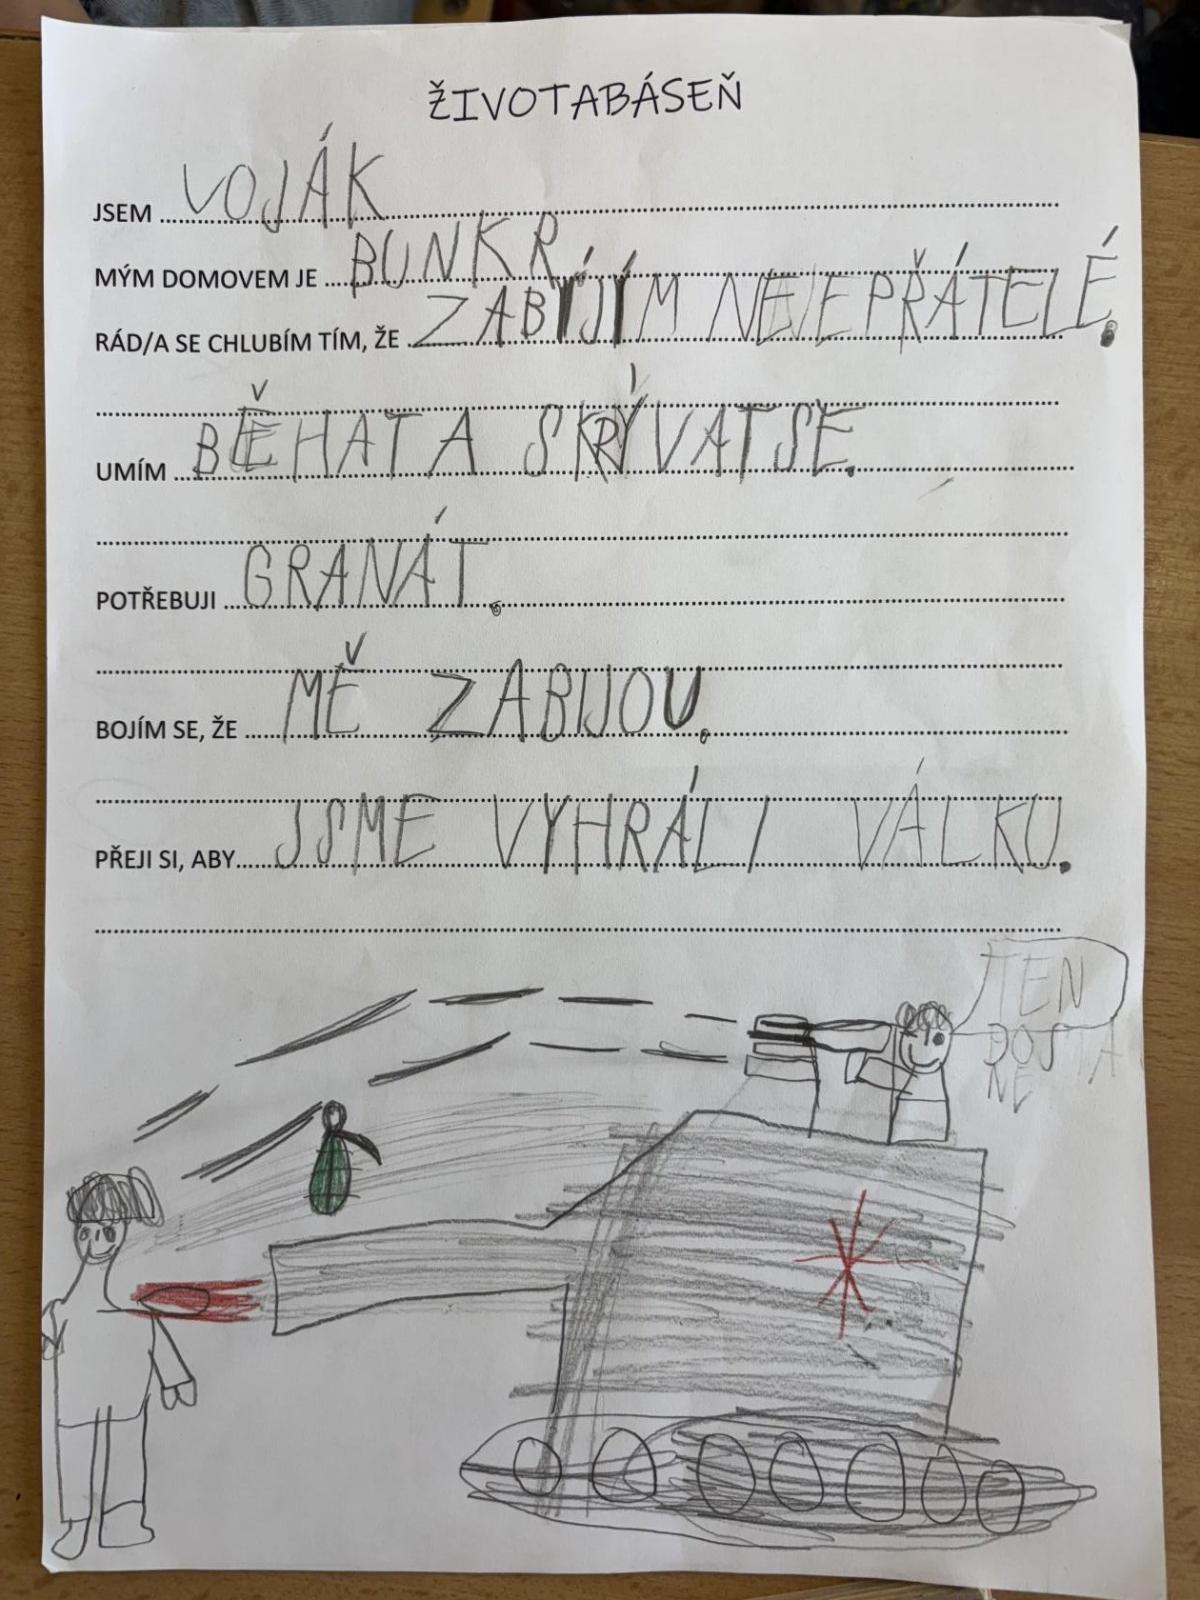 ŽIVOTABÁSEŇ
JSEM VOJÁK
MÝM DOMOVEM JE BUNKR.
RÁD/A SE CHLUBÍM TÍM, ŽE ZABÍJÍM NEJEPŘÁTELÉ.
UMÍM BĚHAT A SKRÝVAT SE.
POTŘEBUJI GRANÁT.
BOJÍM SE, ŽE MĚ ZABIJOU.
PŘEJI SI, ABY JSME VYHRÁLI VÁLKU.
TEN
DOSTA
NE